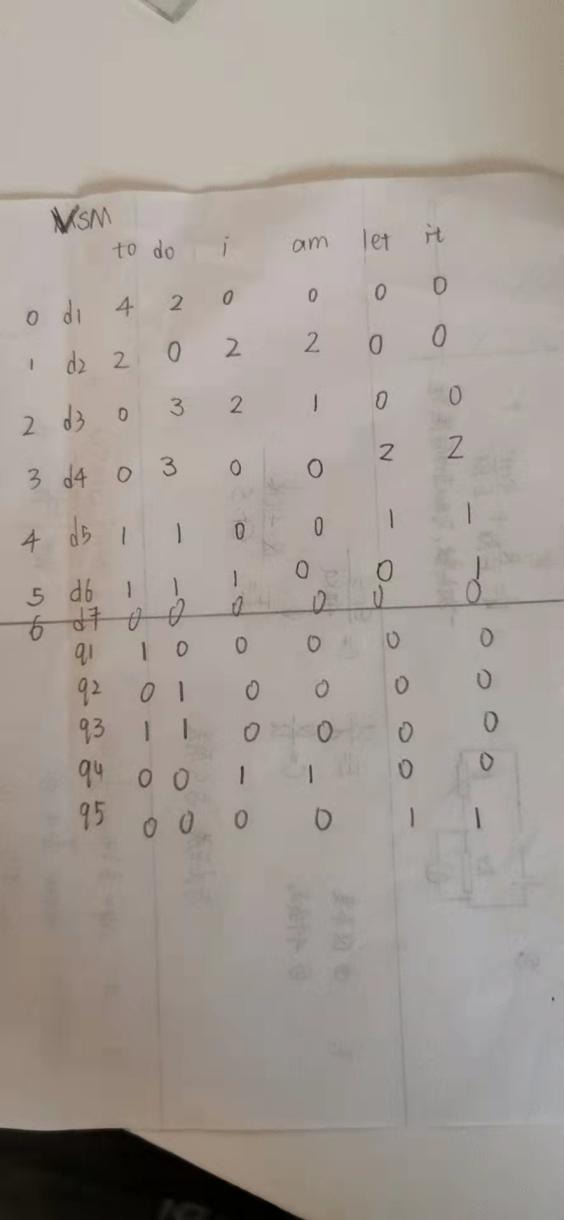 VSM
to do i am let it
0 d1 4 2 0 0 0 0
1 d2 2 0 2 2 0 0
2 d3 0 3 2 1 0 0
3 d4 0 3 0 0 2 2
4 d5 1 1 0 0 1 1
5 d6 1 1 1 0 0 1
6 d7 0 0 0 0 0 0
q1 1 0 0 0 0 0
q2 0 1 0 0 0 0
q3 1 1 0 0 0 0
q4 0 0 1 1 0 0
q5 0 0 0 0 1 1